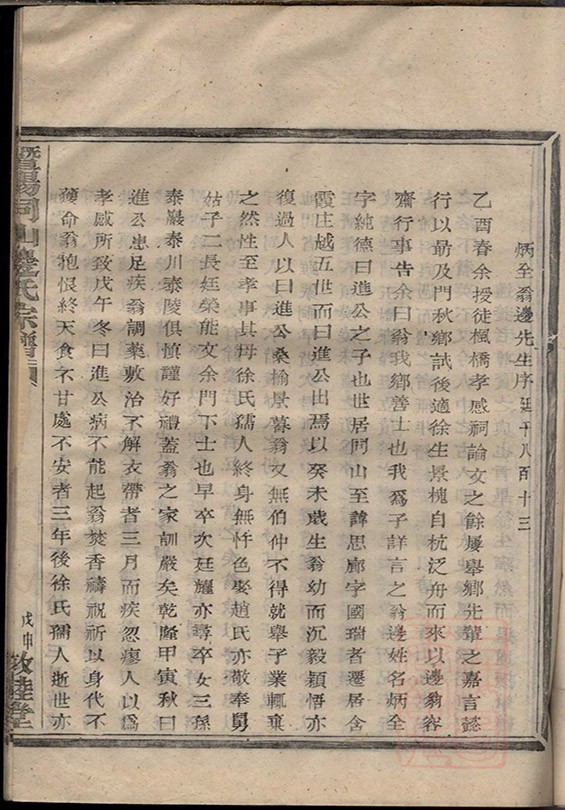 炳全翁邊先生序 廷千八百十三
乙酉春余授徒楓橋孝感祠論文之餘屢舉鄉先輩之嘉言懿
行以勗及門秋鄉試後適徐生景槐自杭泛舟而來以邊翁容
齋行事告余曰翁我鄉善士也我為子詳言之翁邊姓名炳全
字純德曰進公之子也世居同山至諱思廊字國瑞者遷居含
霞庄越五世而曰進公出焉以癸未歲生翁幼而沉毅穎悟亦
復過人以曰進公桑榆景暮翁又無伯仲不得就舉子業輒棄
之然性至孝事其母徐氏孺人終身無忤色娶趙氏亦敬奉舅
姑子二長廷榮能文余門下士也早卒次廷耀亦尋卒女三孫
泰巖泰川泰陵俱慎謹好禮蓋翁之家訓嚴矣乾隆甲寅秋曰
進公患足疾翁調藥敷治不解衣帶者三月而疾忽瘳人以為
孝感所致戊午冬曰進公病不能起翁焚香禱祝祈以身代不
獲命翁抱恨終天食不甘處不安者三年後徐氏孺人逝世亦
暨陽同山邊氏宗譜
戊申 敦睦堂